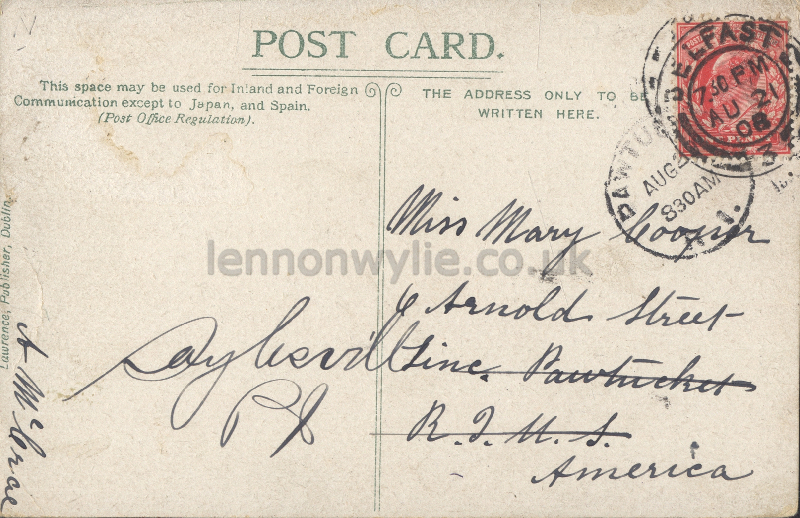 POST CARD.
This space may be used for Inland and Foreign
Communication except to Japan, and Spain.
(Post Office Regulation).
THE ADDRESS ONLY TO BE
WRITTEN HERE.
BELFAST
7 30 PM
AU 21
08
PAWTU
AUG
8 30 AM
R.I.
Miss Mary Cooper
6 Arnold Street
Line. Pawtucket
R.I. U.S.
America
Saylesville
RI
A McCrae
Lawrence, Publisher, Dublin.
lennonwylie.co.uk